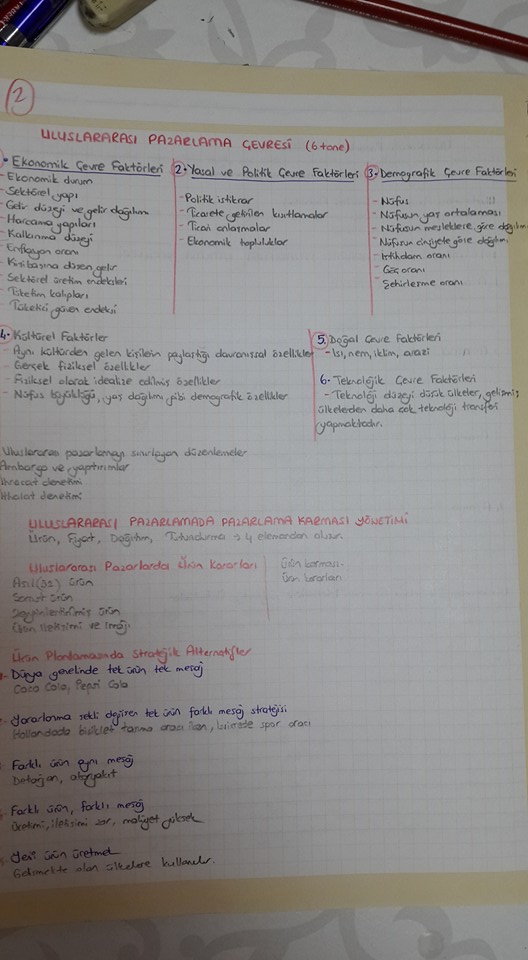 2
ULUSLARARASI PAZARLAMA ÇEVRESİ (6 tane)
1. Ekonomik Çevre Faktörleri
- Ekonomik durum
- Sektörel yapı
- Gelir düzeyi ve gelir dağılımı
- Harcama yapıları
- Kalkınma düzeyi
- Enflasyon oranı
- Kişibaşına düşen gelir
- Sektörel üretim endeksleri
- Tüketim kalıpları
- Tüketici güven endeksi
2. Yasal ve Politik Çevre Faktörleri
- Politik istikrar
- Ticarete getirilen kısıtlamalar
- Ticari anlaşmalar
- Ekonomik topluluklar
3. Demografik Çevre Faktörleri
- Nüfus
- Nüfusun yaş ortalaması
- Nüfusun mesleklere göre dağılımı
- Nüfusun cinsiyete göre dağılımı
- İstihdam oranı
- Göç oranı
- Şehirleşme oranı
4. Kültürel Faktörler
- Aynı kültürden gelen kişilerin paylaştığı davranışsal özellikler
- Gerçek fiziksel özellikler
- Fiziksel olarak idealize edilmiş özellikler
- Nüfus büyüklüğü, yaş dağılımı gibi demografik özellikler
5. Doğal Çevre Faktörleri
- Isı, nem, iklim, arazi
6. Teknolojik Çevre Faktörleri
- Teknoloji düzeyi düşük ülkeler, gelişmiş
ülkelerden daha çok teknoloji transferi
yapmaktadır.
Uluslararası pazarlamayı sınırlayan düzenlemeler
Ambargo ve yaptırımlar
İhracat denetimi
İthalat denetimi
ULUSLARARASI PAZARLAMADA PAZARLAMA KARMASI YÖNETİMİ
Ürün, Fiyat, Dağıtım, Tutundurma → 4 elemandan oluşur.
Uluslararası Pazarlarda Ürün Kararları
Asıl (öz) ürün
Somut ürün
Zenginleştirilmiş ürün
Ürün iletişimi ve imajı
Ürün karması
Ürün kararları
Ürün Planlamasında Stratejik Alternatifler
- Dünya genelinde tek ürün tek mesaj
Coca Cola, Pepsi Cola
- Yararlanma şekli değişen tek ürün farklı mesaj stratejisi
Hollandada bisiklet taşıma aracı iken, bizde spor aracı
Farklı ürün aynı mesaj
Deterjan, akaryakıt
Farklı ürün, farklı mesaj
Üretimi, iletişimi zor, maliyet yüksek
Yeni ürün üretmek
Gelişmekte olan ülkelere kullanılır.